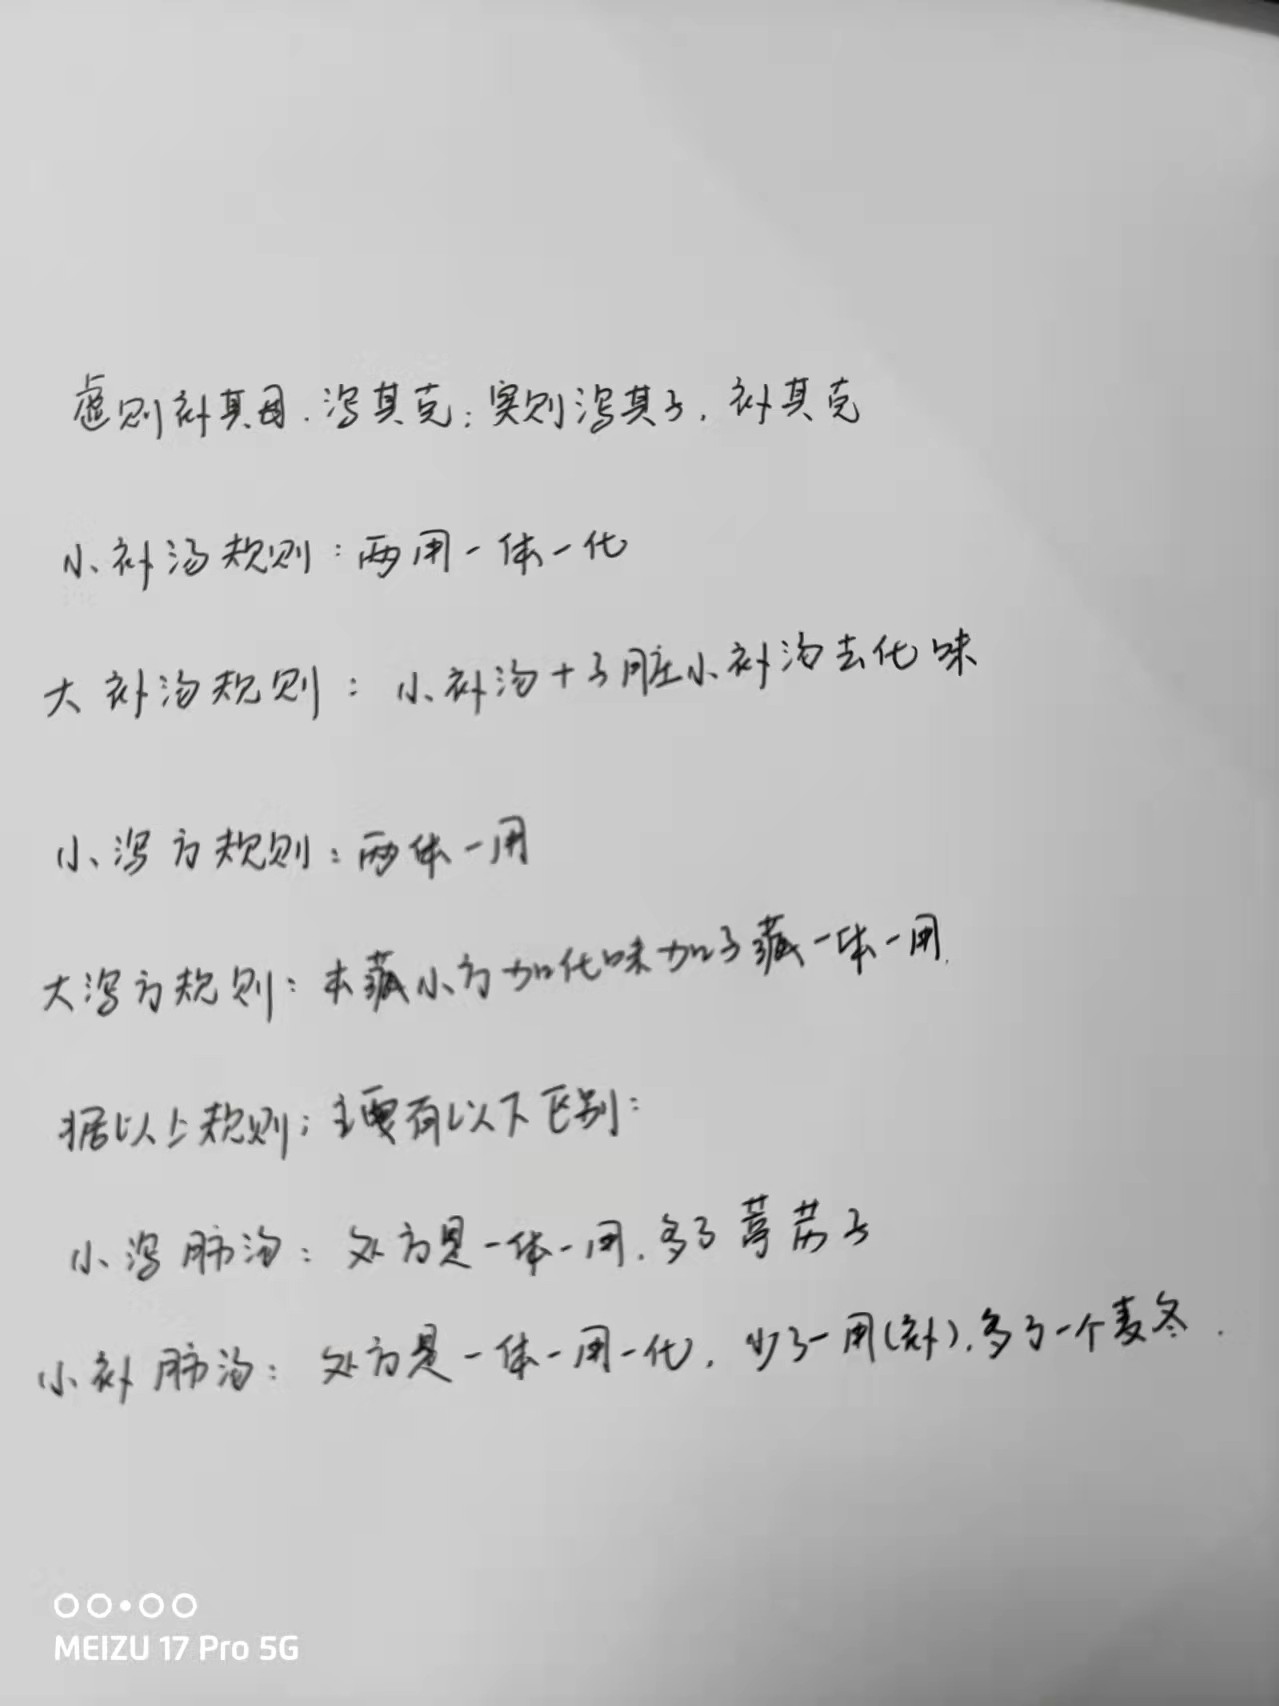 虚则补其母.泻其克;实则泻其子,补其克
小补汤规则:两用一体一化
大补汤规则:小补汤+子脏小补汤去化味
小泻方规则:两体一用
大泻方规则:本藏小方加化味加子藏一体一用.
据以上规则;主要有以下区别:
小泻肺汤:处方是一体一用.多了葶苈子
小补肺汤:处方是一体一用一化,少了一用(补).多了一个麦冬.
MEIZU 17 Pro 5G